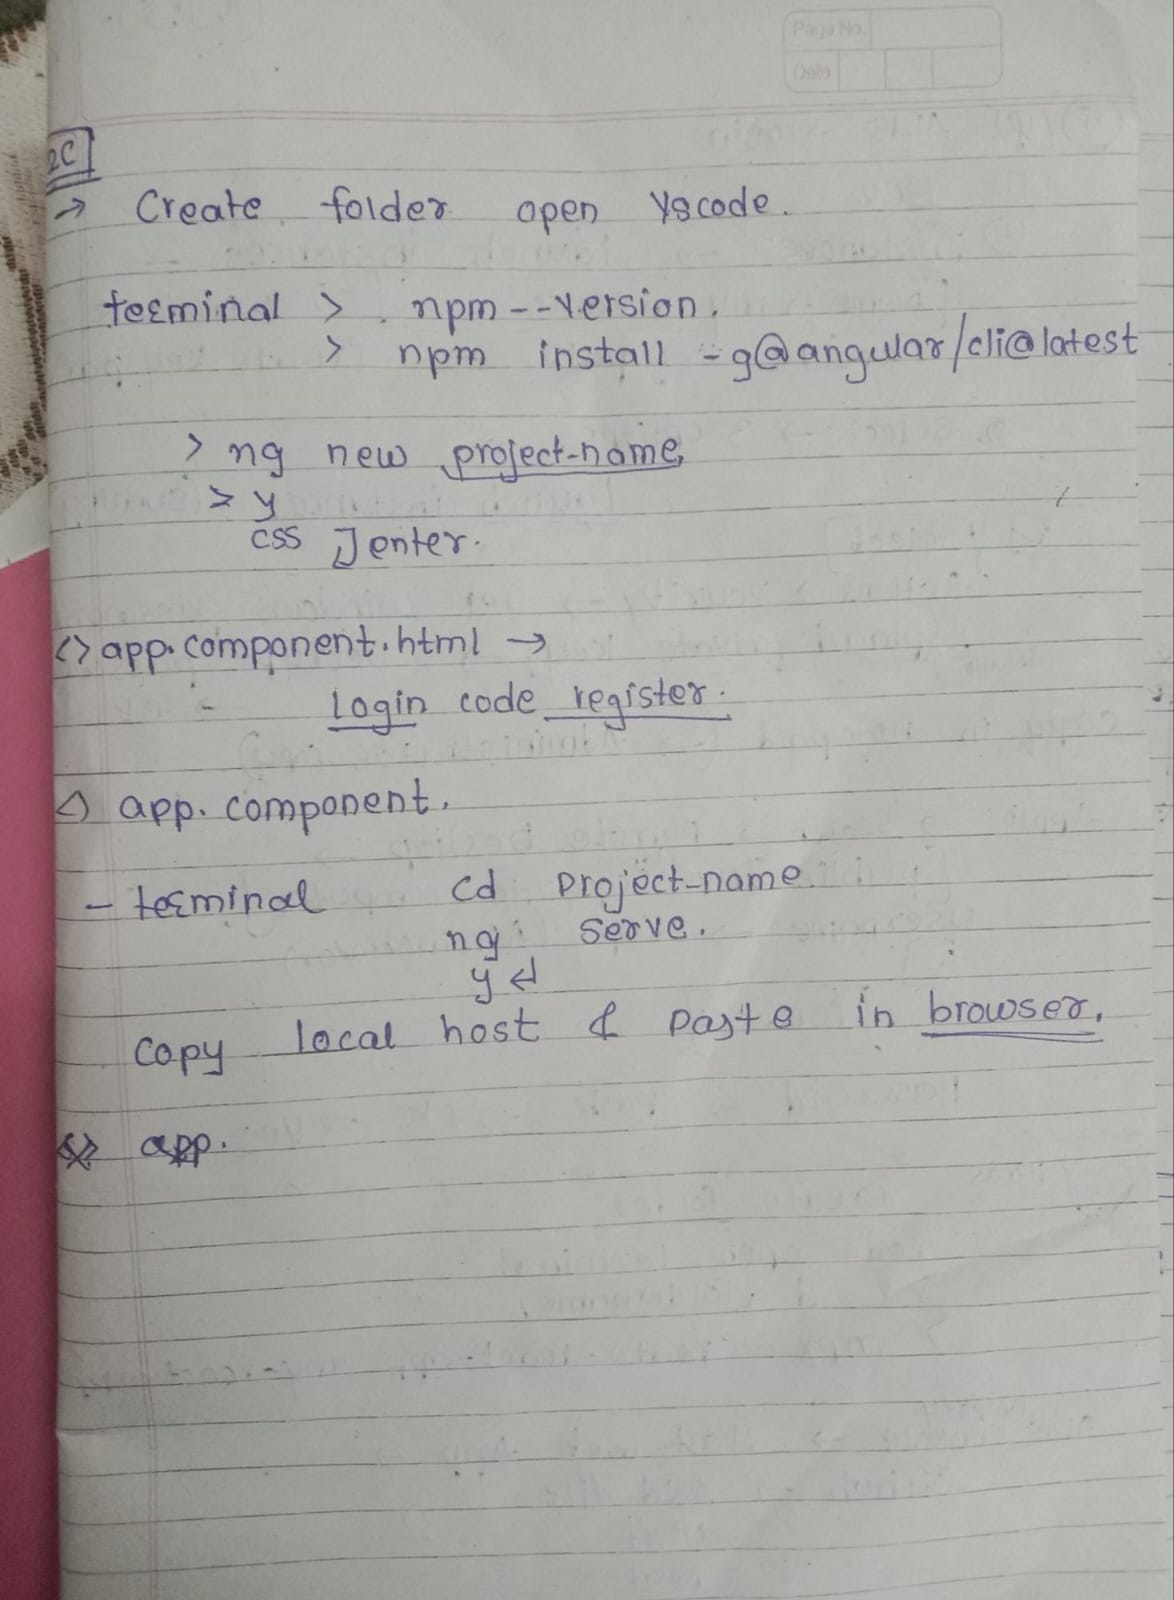 Page No.
Date
2C
→ Create folder open Vscode.
terminal > npm --version.
> npm install -g@angular/cli@latest
> ng new project-name
> y
css enter.
<> app.component.html →
Login code register.
<> app.component.
- terminal cd project-name
ng serve.
y ↵
copy local host & paste in browser.
app.